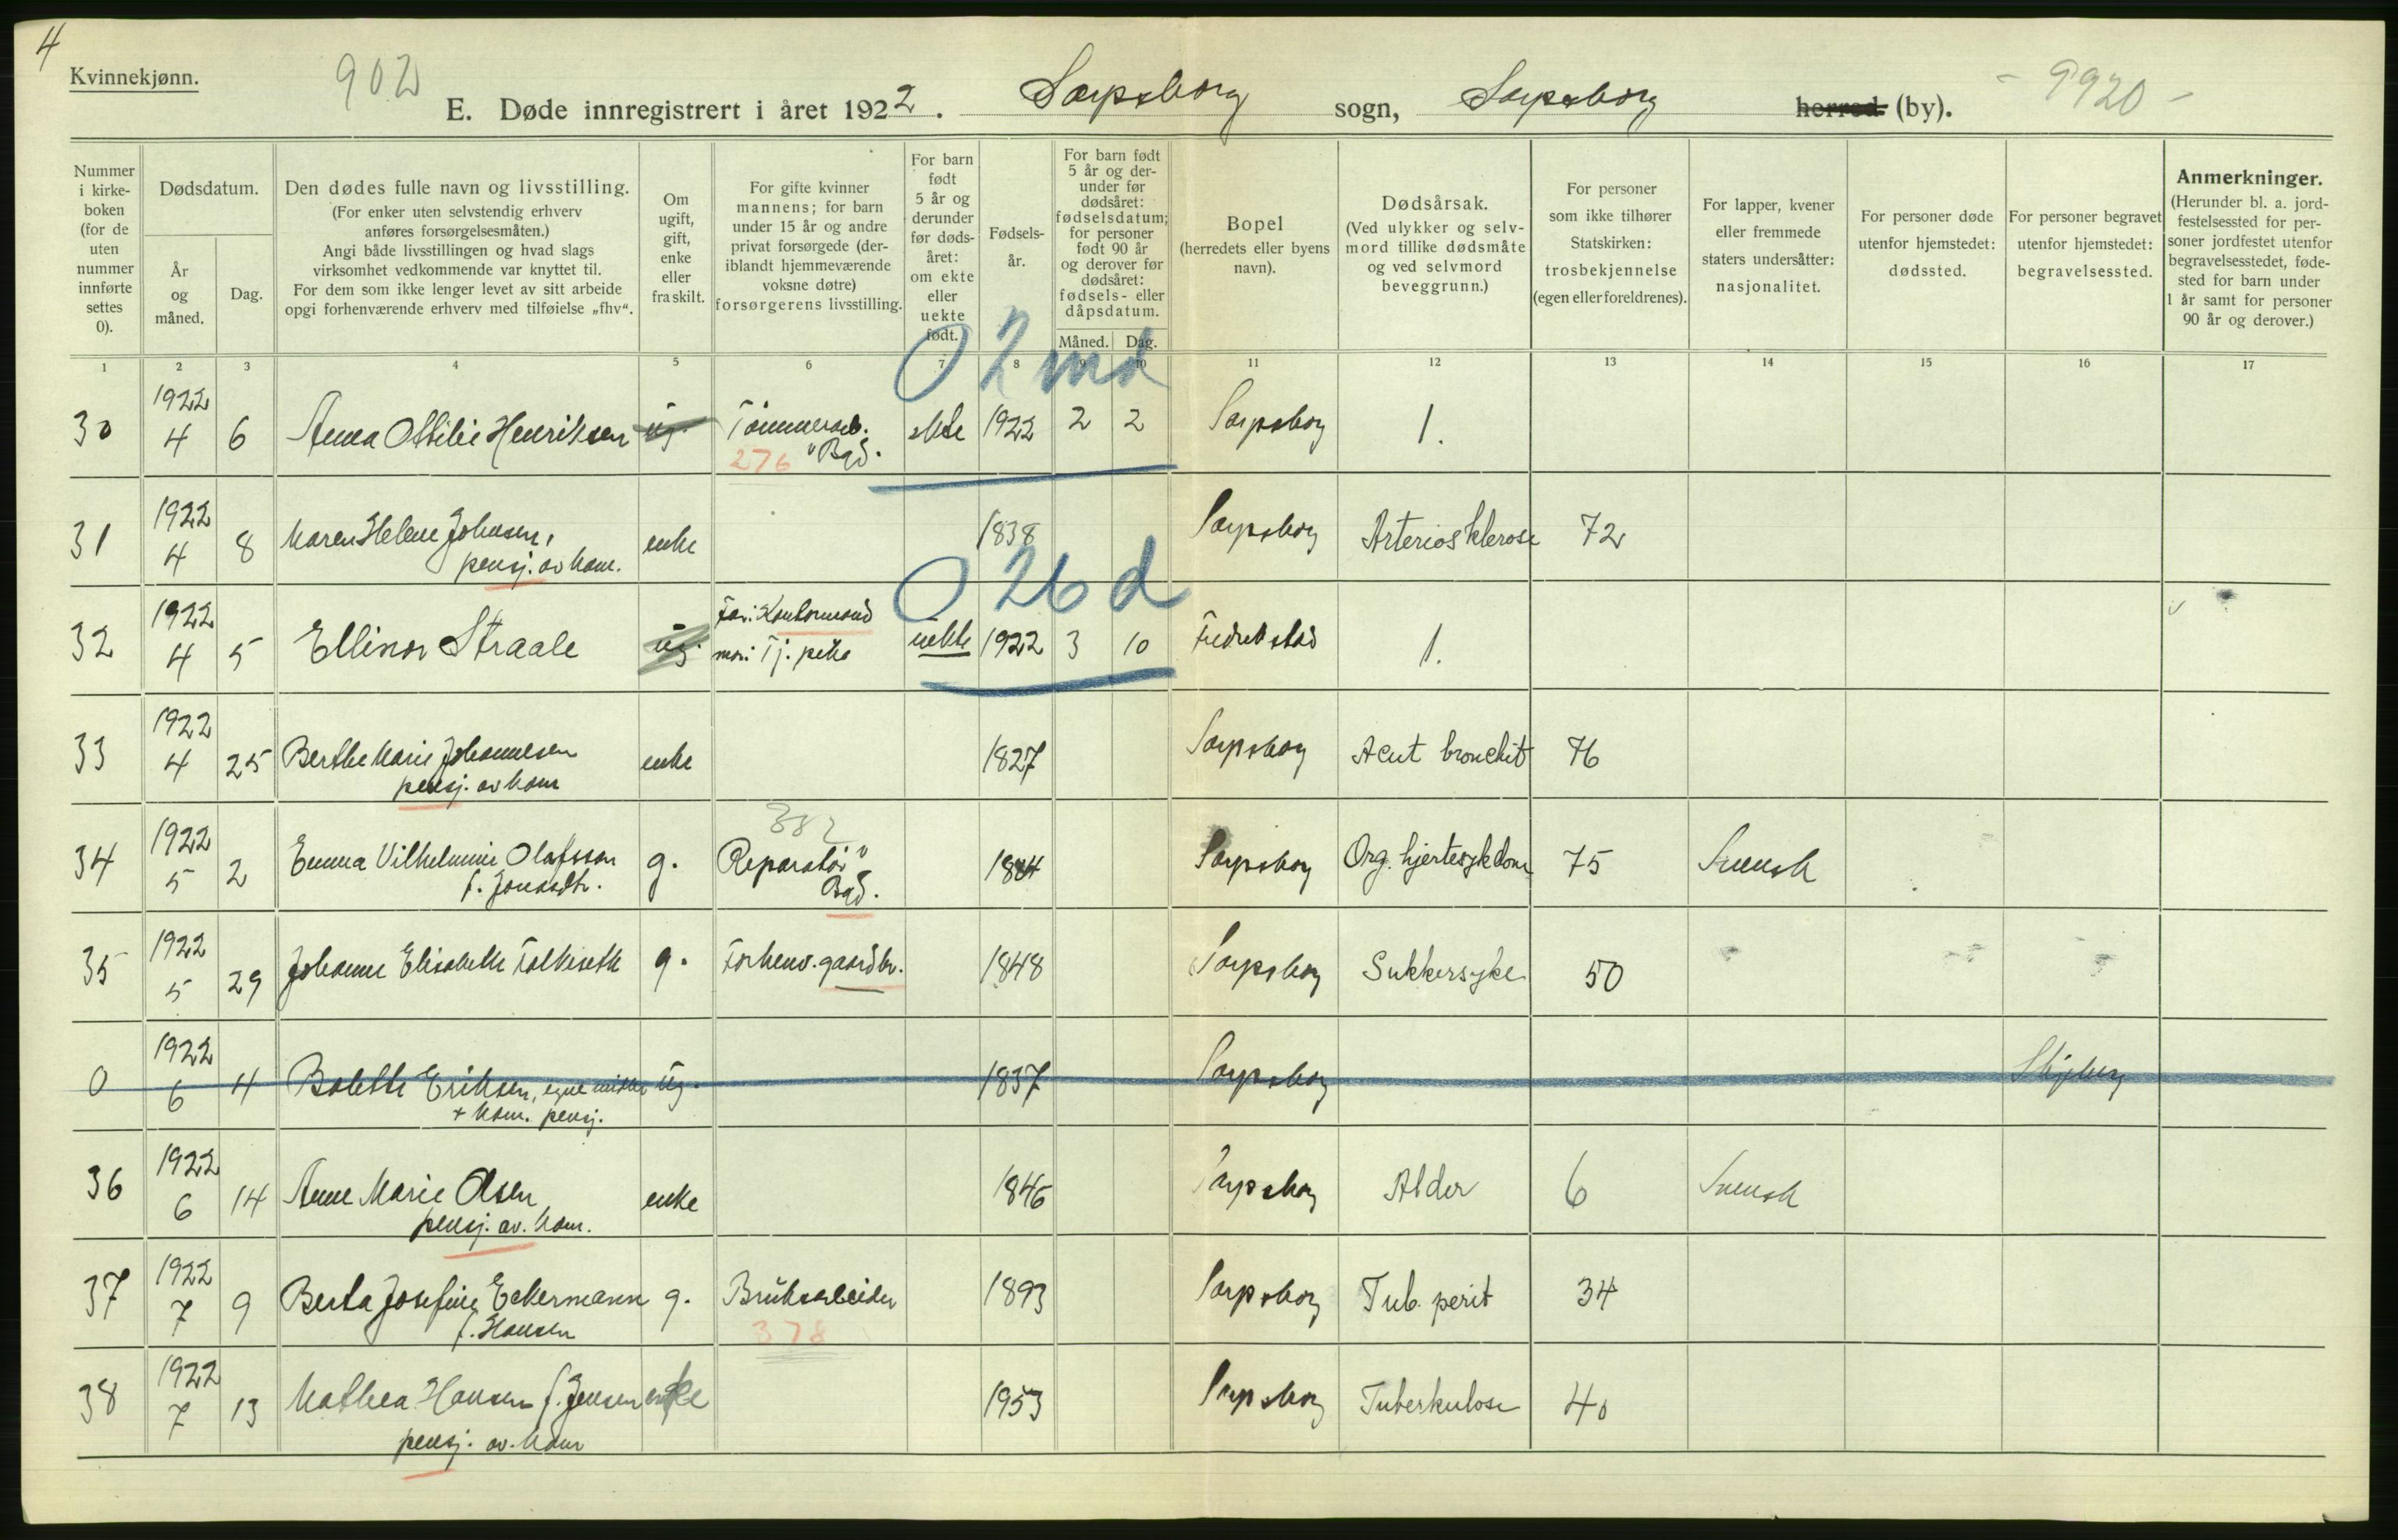 4
Kvinnekjønn.
902
E. Døde innregistrert i året 1922. Sarpsborg sogn, Sarpsborg herred (by).
- 9920 -
Nummer i kirke- boken (for de uten nummer innførte settes 0).
Dødsdatum.
År og måned.
Dag.
Den dødes fulle navn og livsstilling.
(For enker uten selvstendig erhverv
anføres forsørgelsesmåten.)
Angi både livsstillingen og hvad slags
virksomhet vedkommende var knyttet til.
For dem som ikke lenger levet av sitt arbeide
opgi forhenværende erhverv med tilføielse „fhv“.
Om ugift, gift, enke eller fraskilt.
For gifte kvinner
mannens; for barn
under 15 år og andre
privat forsørgede (der-
iblandt hjemmeværende
voksne døtre)
forsørgerens livsstilling.
For barn født 5 år og derunder før døds- året: om ekte eller uekte født.
Fødsels- år.
For barn født
5 år og der-
under før
dødsåret:
fødselsdatum;
for personer
født 90 år
og derover før
dødsåret:
fødsels- eller
dåpsdatum.
Måned. Dag.
Bopel
(herredets eller byens
navn).
Dødsårsak.
(Ved ulykker og selv-
mord tillike dødsmåte
og ved selvmord
beveggrunn.)
For personer
som ikke tilhører
Statskirken:
trosbekjennelse
(egen eller foreldrenes).
For lapper, kvener
eller fremmede
staters undersåtter:
nasjonalitet.
For personer døde
utenfor hjemstedet:
dødssted.
For personer begravet
utenfor hjemstedet:
begravelsessted.
Anmerkninger.
(Herunder bl. a. jord-
festelsessted for per-
soner jordfestet utenfor
begravelsesstedet, føde-
sted for barn under
1 år samt for personer
90 år og derover.)
1 2 3 4 5 6 7 8 9 10 11 12 13 14 15 16 17
0 2 md
30 1922 4 6 Anna Ottilie Henriksen ug. Tømmerarb. ekte 1922 2 2 Sarpsborg 1.
276 "Bgd.
31 1922 4 8 Maren Helene Johnsen, enke 1838 Sarpsborg Arteriosklerose 72
pensj. av kom.
0 26 d
32 1922 4 5 Ellinor Straale ug. Far: Kontormand uekte 1922 3 10 Fredrikstad 1.
mor: Tj. pike
33 1922 4 25 Berthe Marie Johannesen enke 1827 Sarpsborg Acut bronchit 76
pensj. av kom
382
34 1922 5 2 Emma Vilhelmine Olafsson g. Reparatør" Sarpsborg Org. hjertesykdom 75 Svensk
f. Jonasdtr. Bgd.
35 1922 5 29 Johanne Elisabeth Falkeseth g. Forhenv. gaardbr. 1848 Sarpsborg Sukkersyke 50
0 1922 6 4 Bolette Eriksen, egne midler ug. 1837 Sarpsborg Skjeberg
+ kom. pensj.
36 1922 6 14 Anne Marie Olsen enke 1846 Sarpsborg Alder 6 Svensk
pensj. av. kom.
37 1922 7 9 Berta Josefine Eckermann g. Bruksarbeider 1893 Sarpsborg Tub. perit 34
f. Hansen 378
38 1922 7 13 Mathea Hansen f. Jensen enke 1953 Sarpsborg Tuberkulose 40
pensj. av. kom